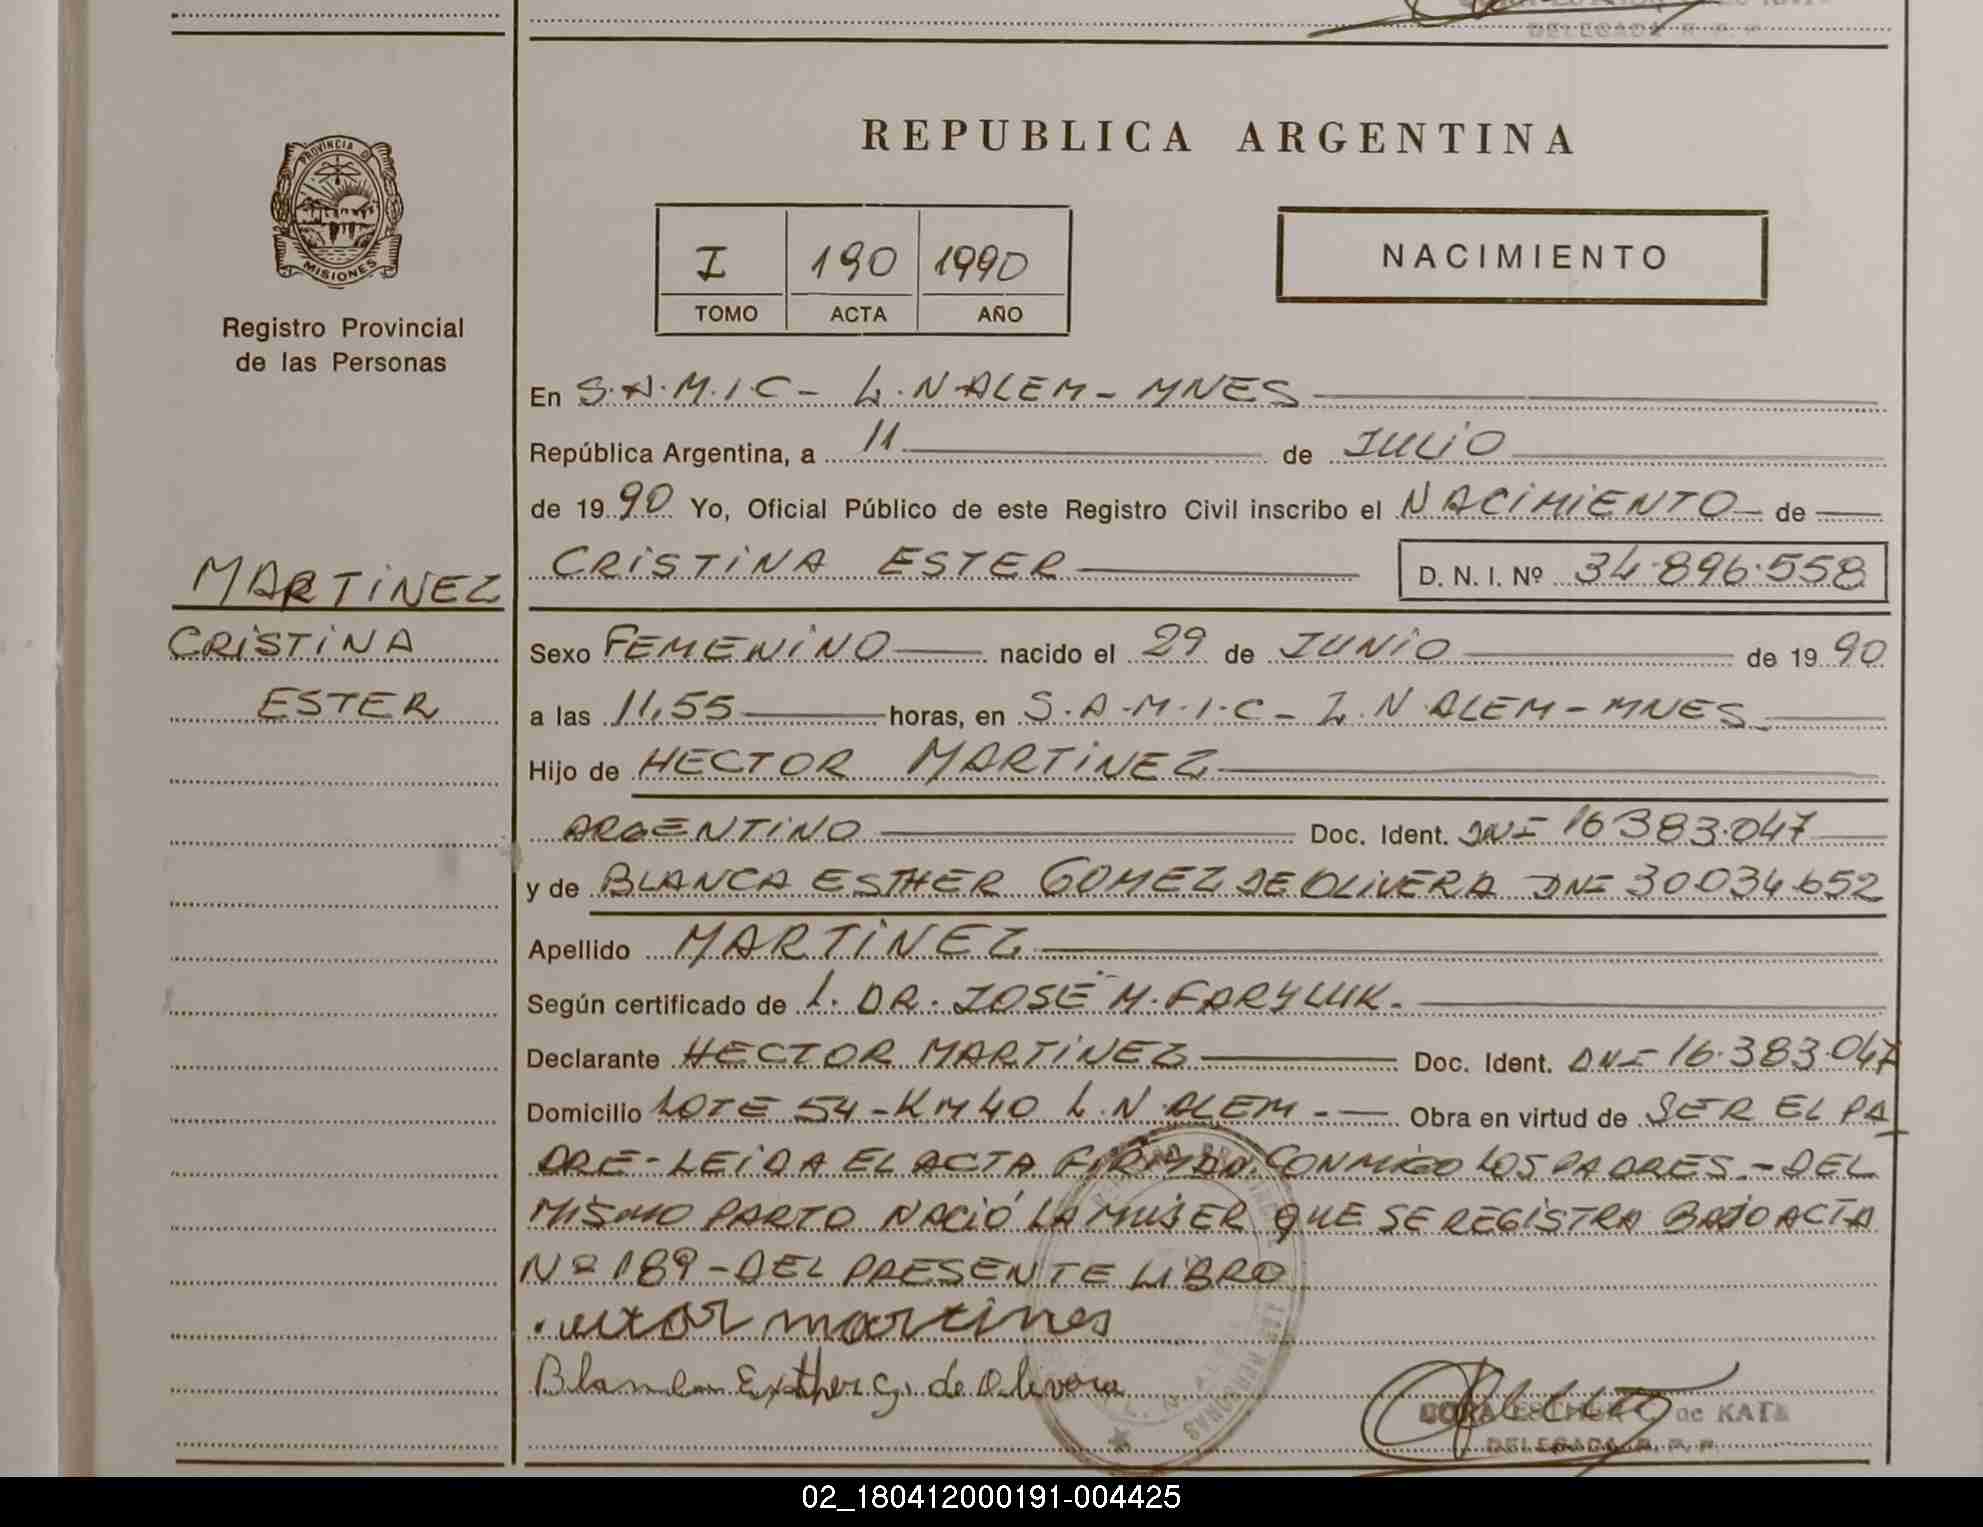 DELEGADA R. P. P.
REPUBLICA ARGENTINA
PROVINCIA D
MISIONES
Registro Provincial
de las Personas
I 190 1990
TOMO ACTA AÑO
NACIMIENTO
En S.A.M.I.C - L.N.ALEM - MNES
República Argentina, a 11 de JULIO
de 1990 Yo, Oficial Público de este Registro Civil inscribo el NACIMIENTO de
MARTINEZ
CRISTINA
ESTER
CRISTINA ESTER D. N. I. Nº 34.896.558
Sexo FEMENINO nacido el 29 de JUNIO de 1990
a las 11,55 horas, en S.A.M.I.C - L.N.ALEM - MNES
Hijo de HECTOR MARTINEZ
ARGENTINO Doc. Ident. DNI 16.383.047
y de BLANCA ESTHER GOMEZ DE OLIVERA DNI 30034652
Apellido MARTINEZ
Según certificado de DR. JOSÉ M. FARYLUK.
Declarante HECTOR MARTINEZ Doc. Ident. DNI 16.383.047
Domicilio LOTE 54 - KM 40 L.N.ALEM - Obra en virtud de SER EL PA
DRE - LEIDA EL ACTA FIRMAN CONMIGO LOS PADRES. - DEL
MISMO PARTO NACIÓ LA MUJER QUE SE REGISTRA BAJO ACTA
Nº 189 - DEL PRESENTE LIBRO
martines
Blanca Exther G. de Olivera
de KATZ
DELEGADA R. P. P.
02_180412000191-004425